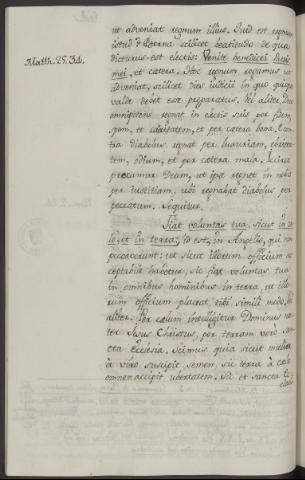 ut adveniat regnum illius. Quid est regnum
istud? Æterna scilicet beatitudo de qua
Matth. 25. 34.
dicturus est electis: Venite benedicti Patris
mei, et cætera. Hoc regnum rogamus ut
adveniat, scilicet dies judicii in quo quisque
valde debet esse præparatus. Vel aliter, Deus
omnipotens regnat in electis suis per fidem,
spem, et caritatem, et per cætera bona. Con-
tra diabolus regnat per luxuriam, cupidita-
tem, odium, et per cætera mala. Igitur
precamur Deum, ut ipse regnet in nobis
per justitiam, ubi regnabat diabolus per
peccatum. Sequitur:
Fiat voluntas tua, sicut in cœ-
lo, et in terra; id est, in Angelis, qui non
peccaverunt: ut sicut illorum officium ac-
ceptabile habetur, sic fiat voluntas tua
in omnibus hominibus in terra, ut illo-
rum officium placeat tibi simili modo. Vel
aliter. Per cœlum intelligitur Dominus nos-
ter Jesus Christus, per terram vero san-
cta Ecclesia. Scimus quia sicut mulier
a viro suscipit semen, sic terra a cœlo
omnem accipit ubertatem, sic et sancta Ec-